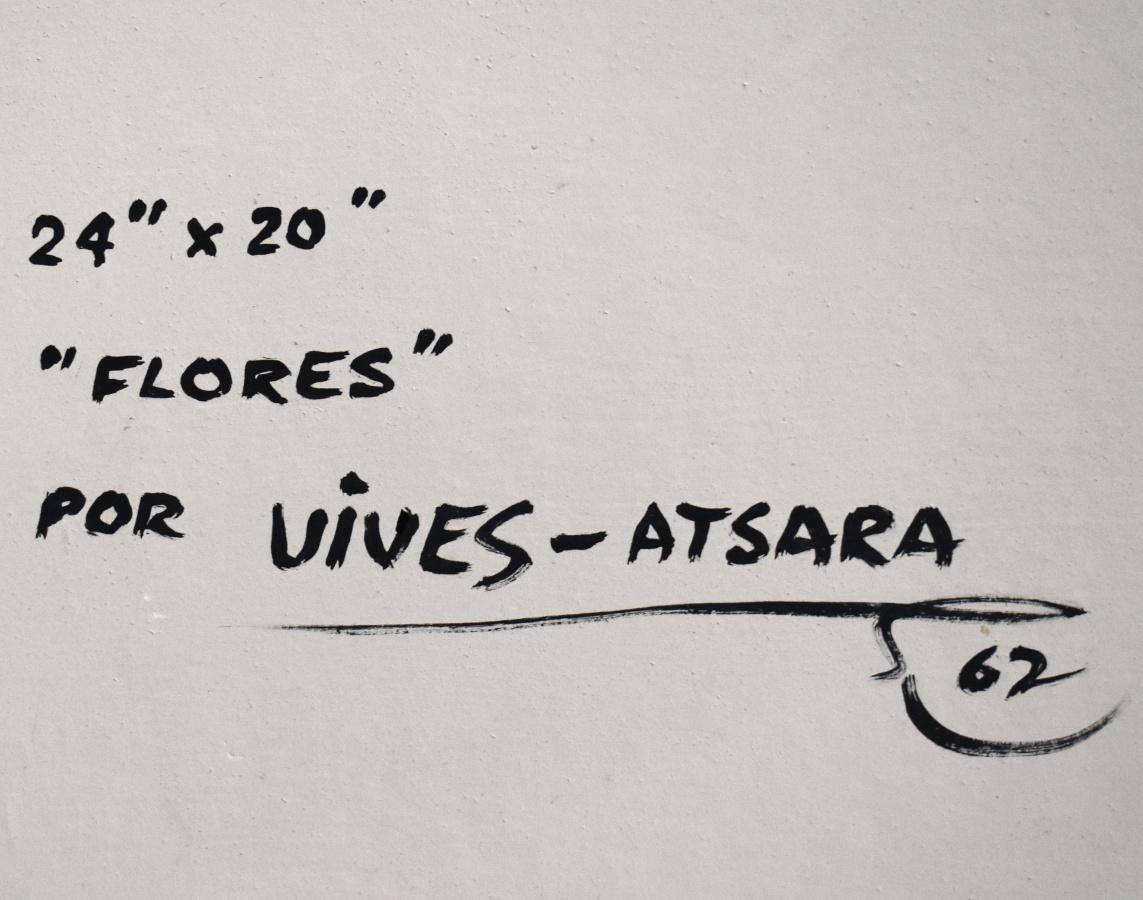 24" x 20"
"FLORES"
POR ViVES - ATSARA
62